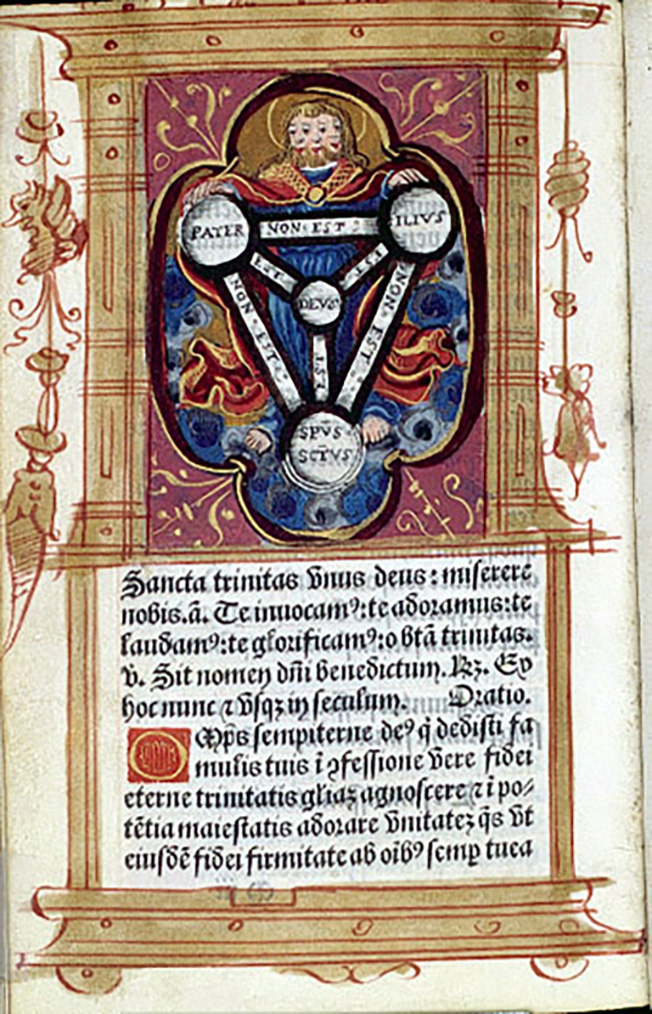 PATER
NON EST
ILIVS
EST
EST
DEVS
NON EST
EST
NON EST
SPVS
SCTVS
Sancta trinitas vnus deus: miserere
nobis.a͂. Te inuocamꝰ: te adoramus: te
laudamꝰ: te glorificamꝰ: o btā trinitas.
v. Sit nomen dn̄i benedictum. Rꝫ. Ex
hoc nunc ⁊ vsqꝫ in seculum. Oratio.
Mp̄s sempiterne deꝰ q̇ dedisti fa
mulis tuis ī ꝯfessione vere fidei
eterne trinitatis gliaꝫ agnoscere ⁊ ī po⸗
tētia maiestatis adorare vnitateꝫ q̄s vt
eiusdē fidei firmitate ab oībꝰ semp tuea